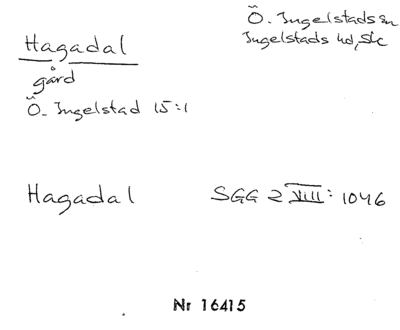 Hagadal
gård
Ö. Ingelstad 15:1
Ö. Ingelstads sn
Ingelstads hd, Sk
Hagadal
SGG 2 VIII: 1046
Nr 16415